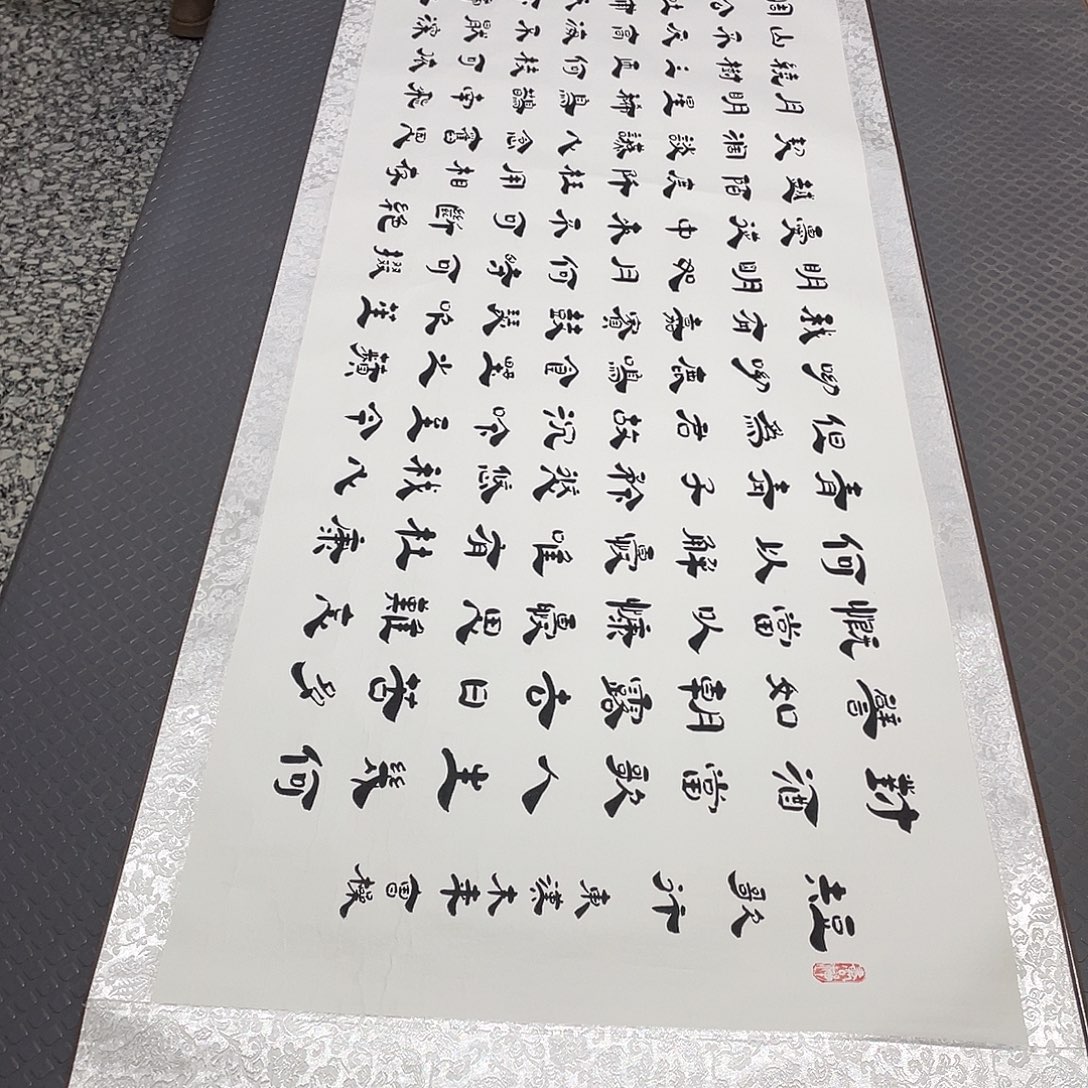 短歌行 東漢末年曹操
對酒當歌人生幾何
譬如朝露去日苦多
慨當以慷憂思難忘
何以解憂唯有杜康
青青子衿悠悠我心
但為君故沉吟至今
呦呦鹿鳴食野之蘋
我有嘉賓鼓瑟吹笙
明明如月何時可掇
憂從中來不可斷絕
越陌度阡枉用相存
契闊談讌心念舊恩
月明星稀烏鵲南飛
繞樹三匝何枝可依
山不厭高海不厭深
周公吐哺